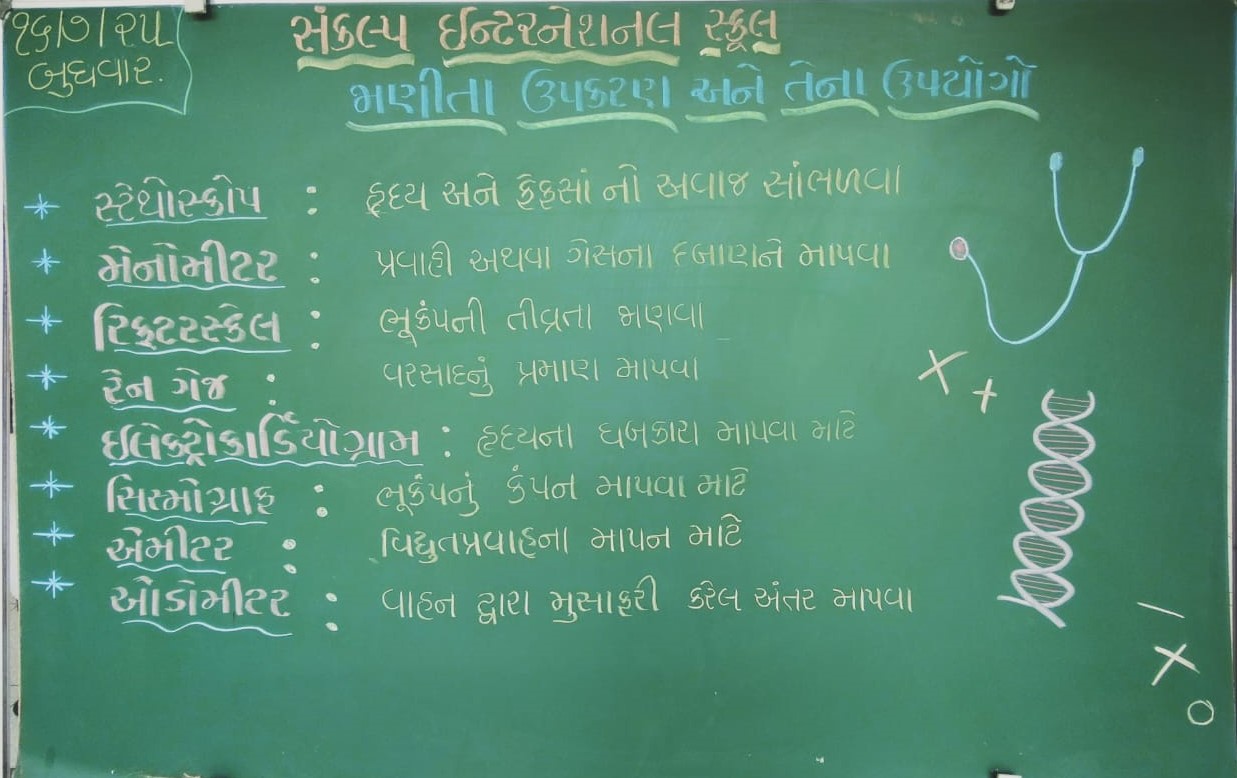 ૧૬/૭/૨૫
બુધવાર.
સંકલ્પ ઈન્ટરનેશનલ સ્કૂલ
જાણીતા ઉપકરણ અને તેના ઉપયોગો
* સ્ટેથોસ્કોપ : હૃદય અને ફેફસાં નો અવાજ સાંભળવા
* મેનોમીટર : પ્રવાહી અથવા ગેસના દબાણને માપવા
* રિક્ટરસ્કેલ : ભૂકંપની તીવ્રતા જાણવા
* રેન ગેજ : વરસાદનું પ્રમાણ માપવા
* ઇલેક્ટ્રોકાર્ડિયોગ્રામ : હૃદયના ધબકારા માપવા માટે
* સિસ્મોગ્રાફ : ભૂકંપનું કંપન માપવા માટે
* એમીટર : વિદ્યુતપ્રવાહના માપન માટે
* ઓડોમીટર : વાહન દ્વારા મુસાફરી કરેલ અંતર માપવા